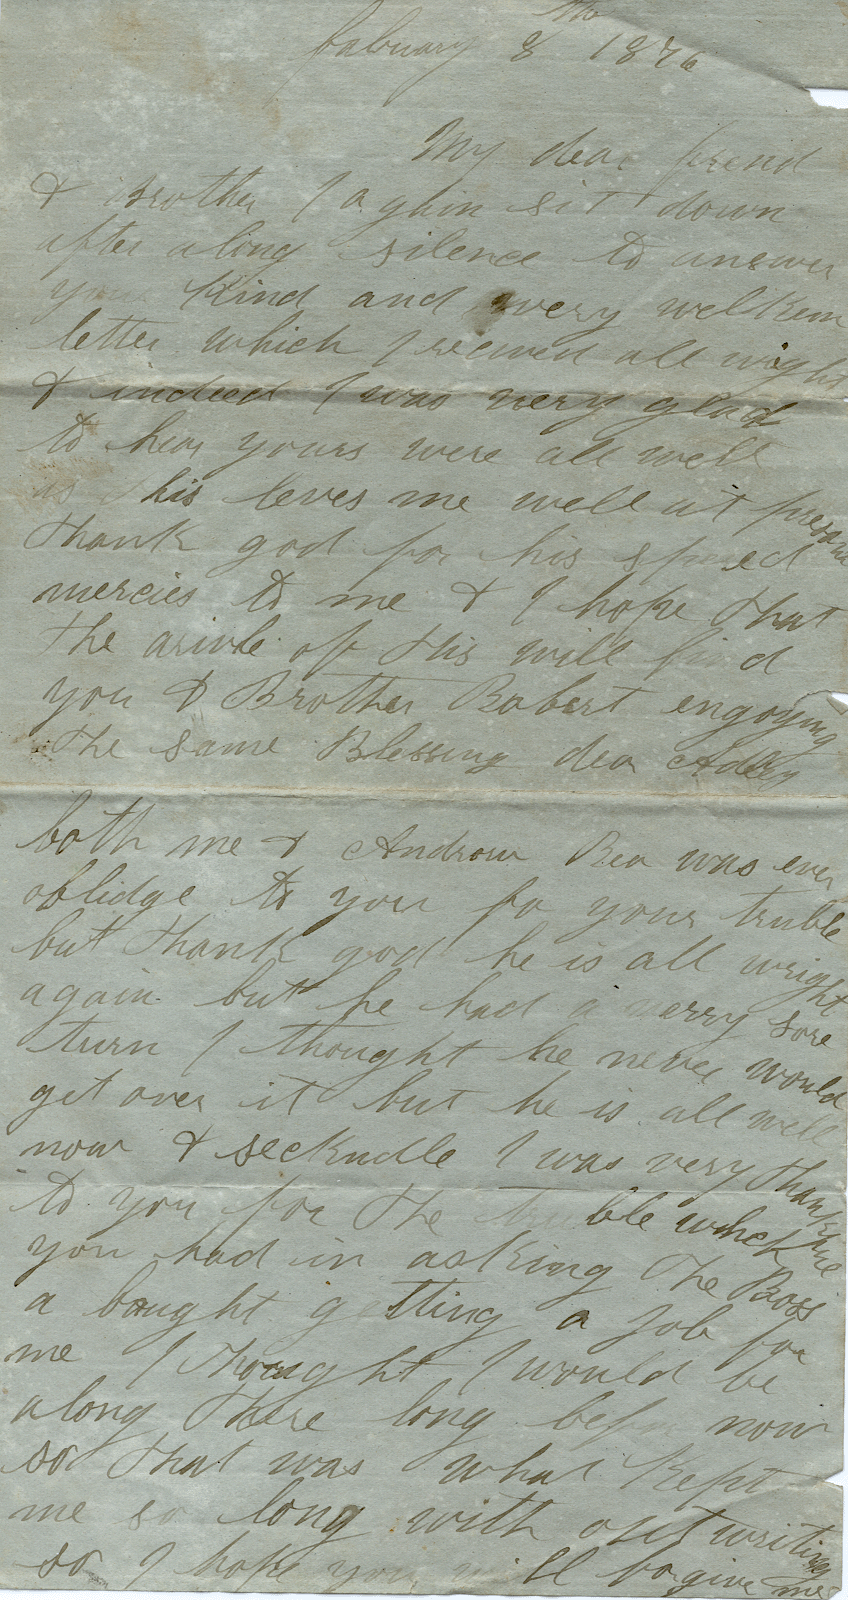 fabuary 8 th 1876
My dear frend
& Brother I again sit down
after along silence to answer
your Kind and wery welkem
letter which I receved all wright
& indeed I was very glad
to hear yours were all well
as this leves me well at present
thank god for his spared
mercies to me & I hope that
the arivle of this will find
you & Brother Robert engoying
the same Blessing dear
both me & Androw Rea was ever
oblidge to you fo your truble
but thank god he is all wright
again but he had a verry sore
turn I thought he never would
get over it but he is all well
now & seckndle I was very thankful
to you for the truble which
you had in asking the Boss
a bought getting a Job for
me I thought I would be
along there long before now
so that was what Kept
me so long with out writing
so I hope you will forgive me